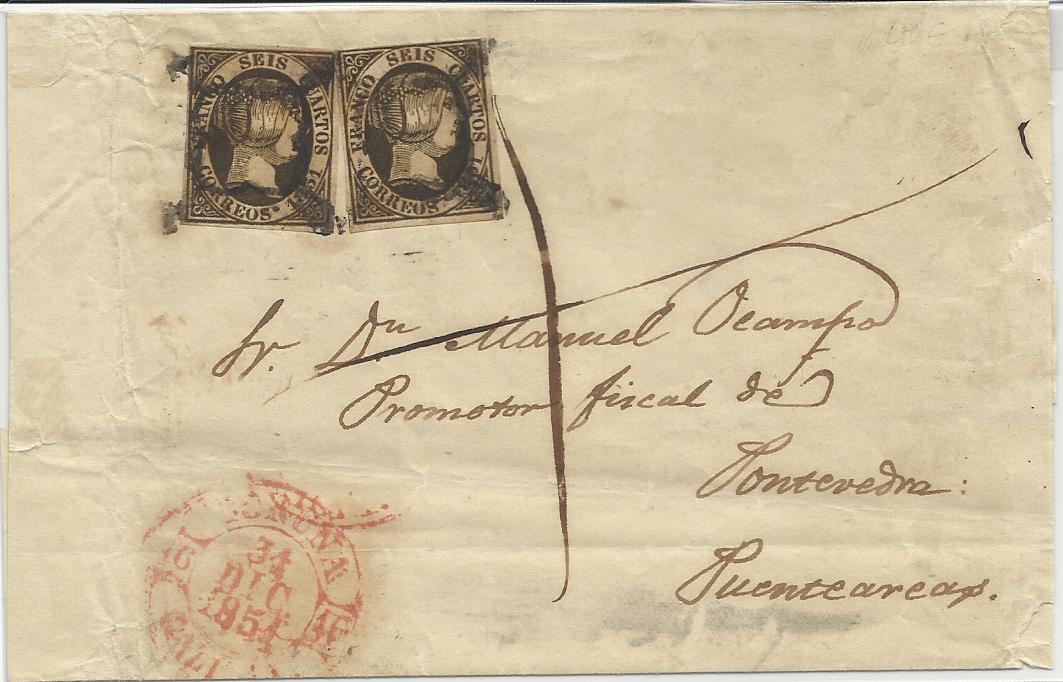 FRANCO SEIS CUARTOS
CORREOS 1851
FRANCO SEIS CUARTOS
CORREOS
Sr. Dn Manuel Ocampo
Promotor fiscal de
Pontevedra:
Puenteareas.
CORUÑA
31
DIC
1851